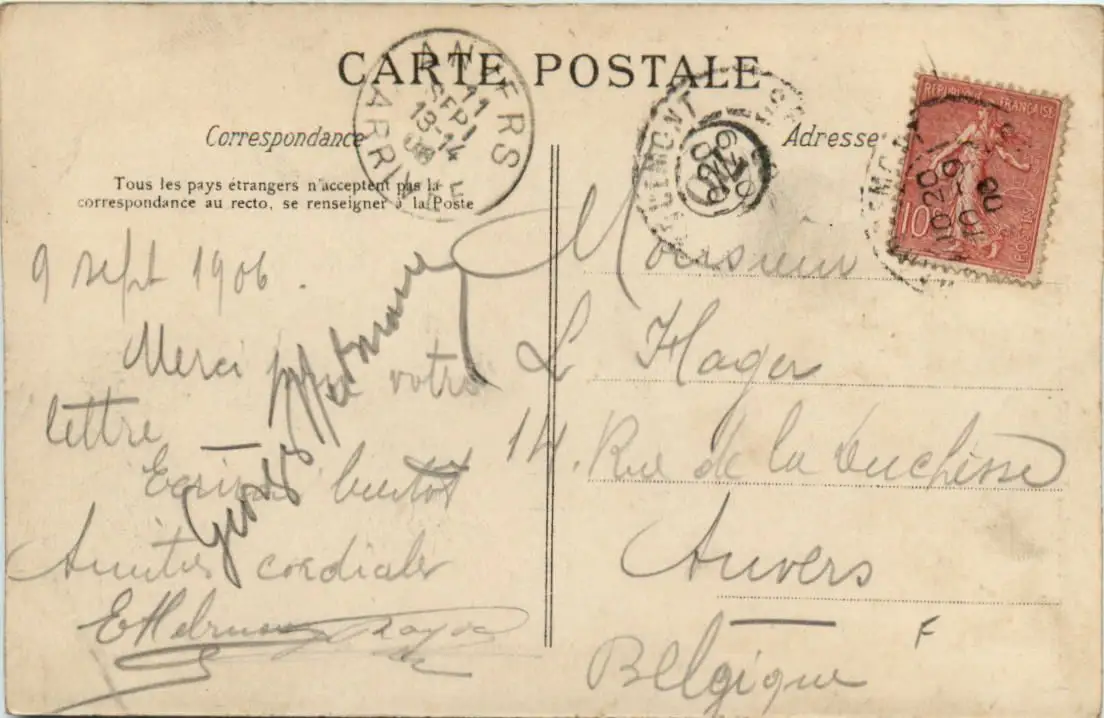 CARTE POSTALE
Correspondance
Adresse
Tous les pays étrangers n'acceptent pas la
correspondance au recto, se renseigner à la Poste
ANVERS
11
SEPT
13-14
06
ARRIVÉE
REPUBLIQUE FRANÇAISE
10c
POSTES
9 sept 1906.
Merci pour votre
lettre
Ecrirai bientot
Amitiés cordiales
Georges
Monsieur
L Hager
14. Rue de la Duchesse
Anvers
Belgique
F